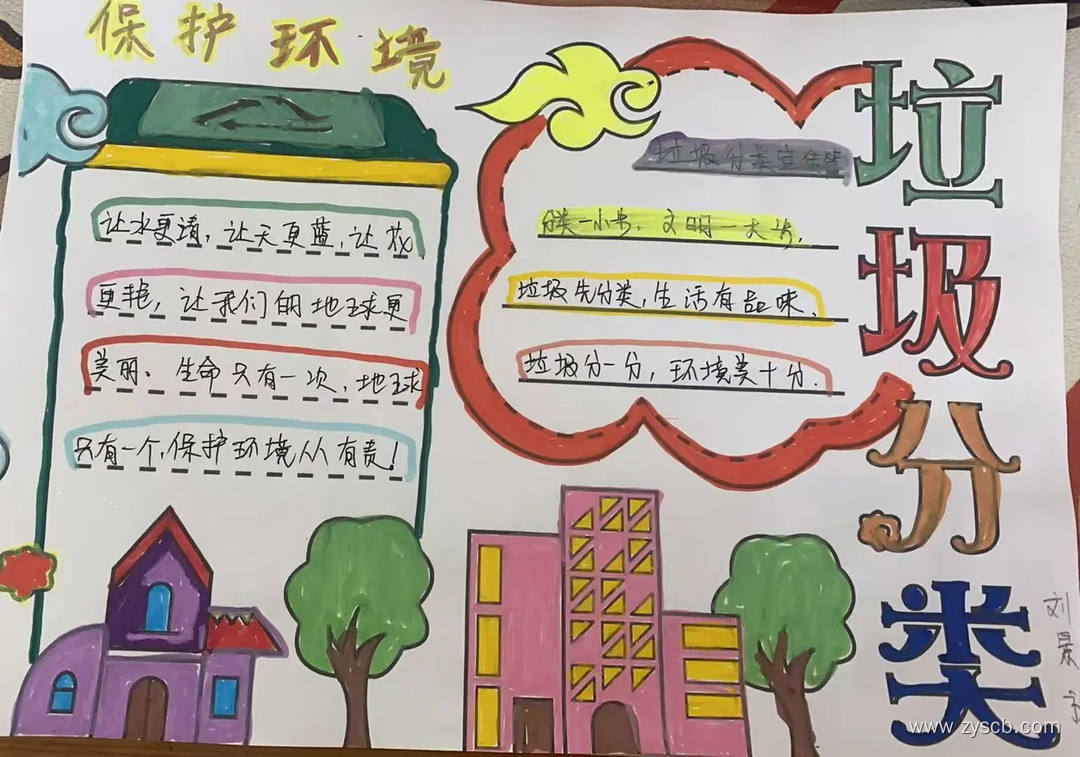 保护环境
让水更清，让天更蓝，让花
更艳，让我们的地球更
美丽、生命只有一次，地球
只有一个，保护环境从有责！
垃圾分类宣传
分类一小步，文明一大步，
垃圾先分类，生活有品味，
垃圾分一分，环境美十分．
垃圾分类
刘
www.zyscb.com